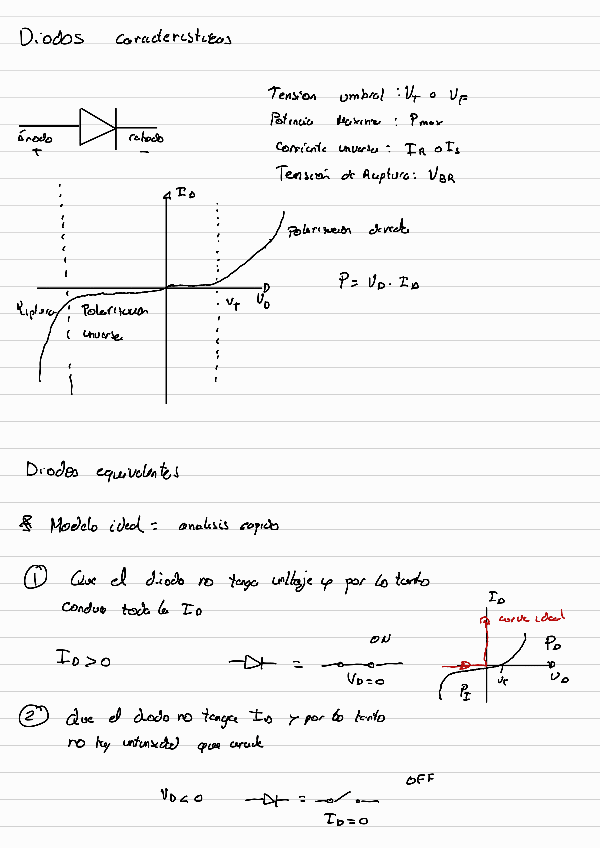 Diodos caracteristicas
Tension umbral : VT o VF
Potencia Maxima : Pmax
Corriente inversa : IR o Is
Tensión de Ruptura : VBR
ánodo +
catodo -
ID
Polarizacion directa
P = VD · ID
Ruptura
Polarizacion inversa
VT
VD
Diodos equivalentes
* Modelo ideal = analisis rapido
① Que el diodo no tenga voltaje y por lo tanto
conduce toda la ID
ID > 0
=
ON
VD = 0
ID
curva ideal
PD
VT
VD
PI
② Que el diodo no tenga ID y por lo tanto
no hay intensidad que
VD < 0
=
OFF
ID = 0